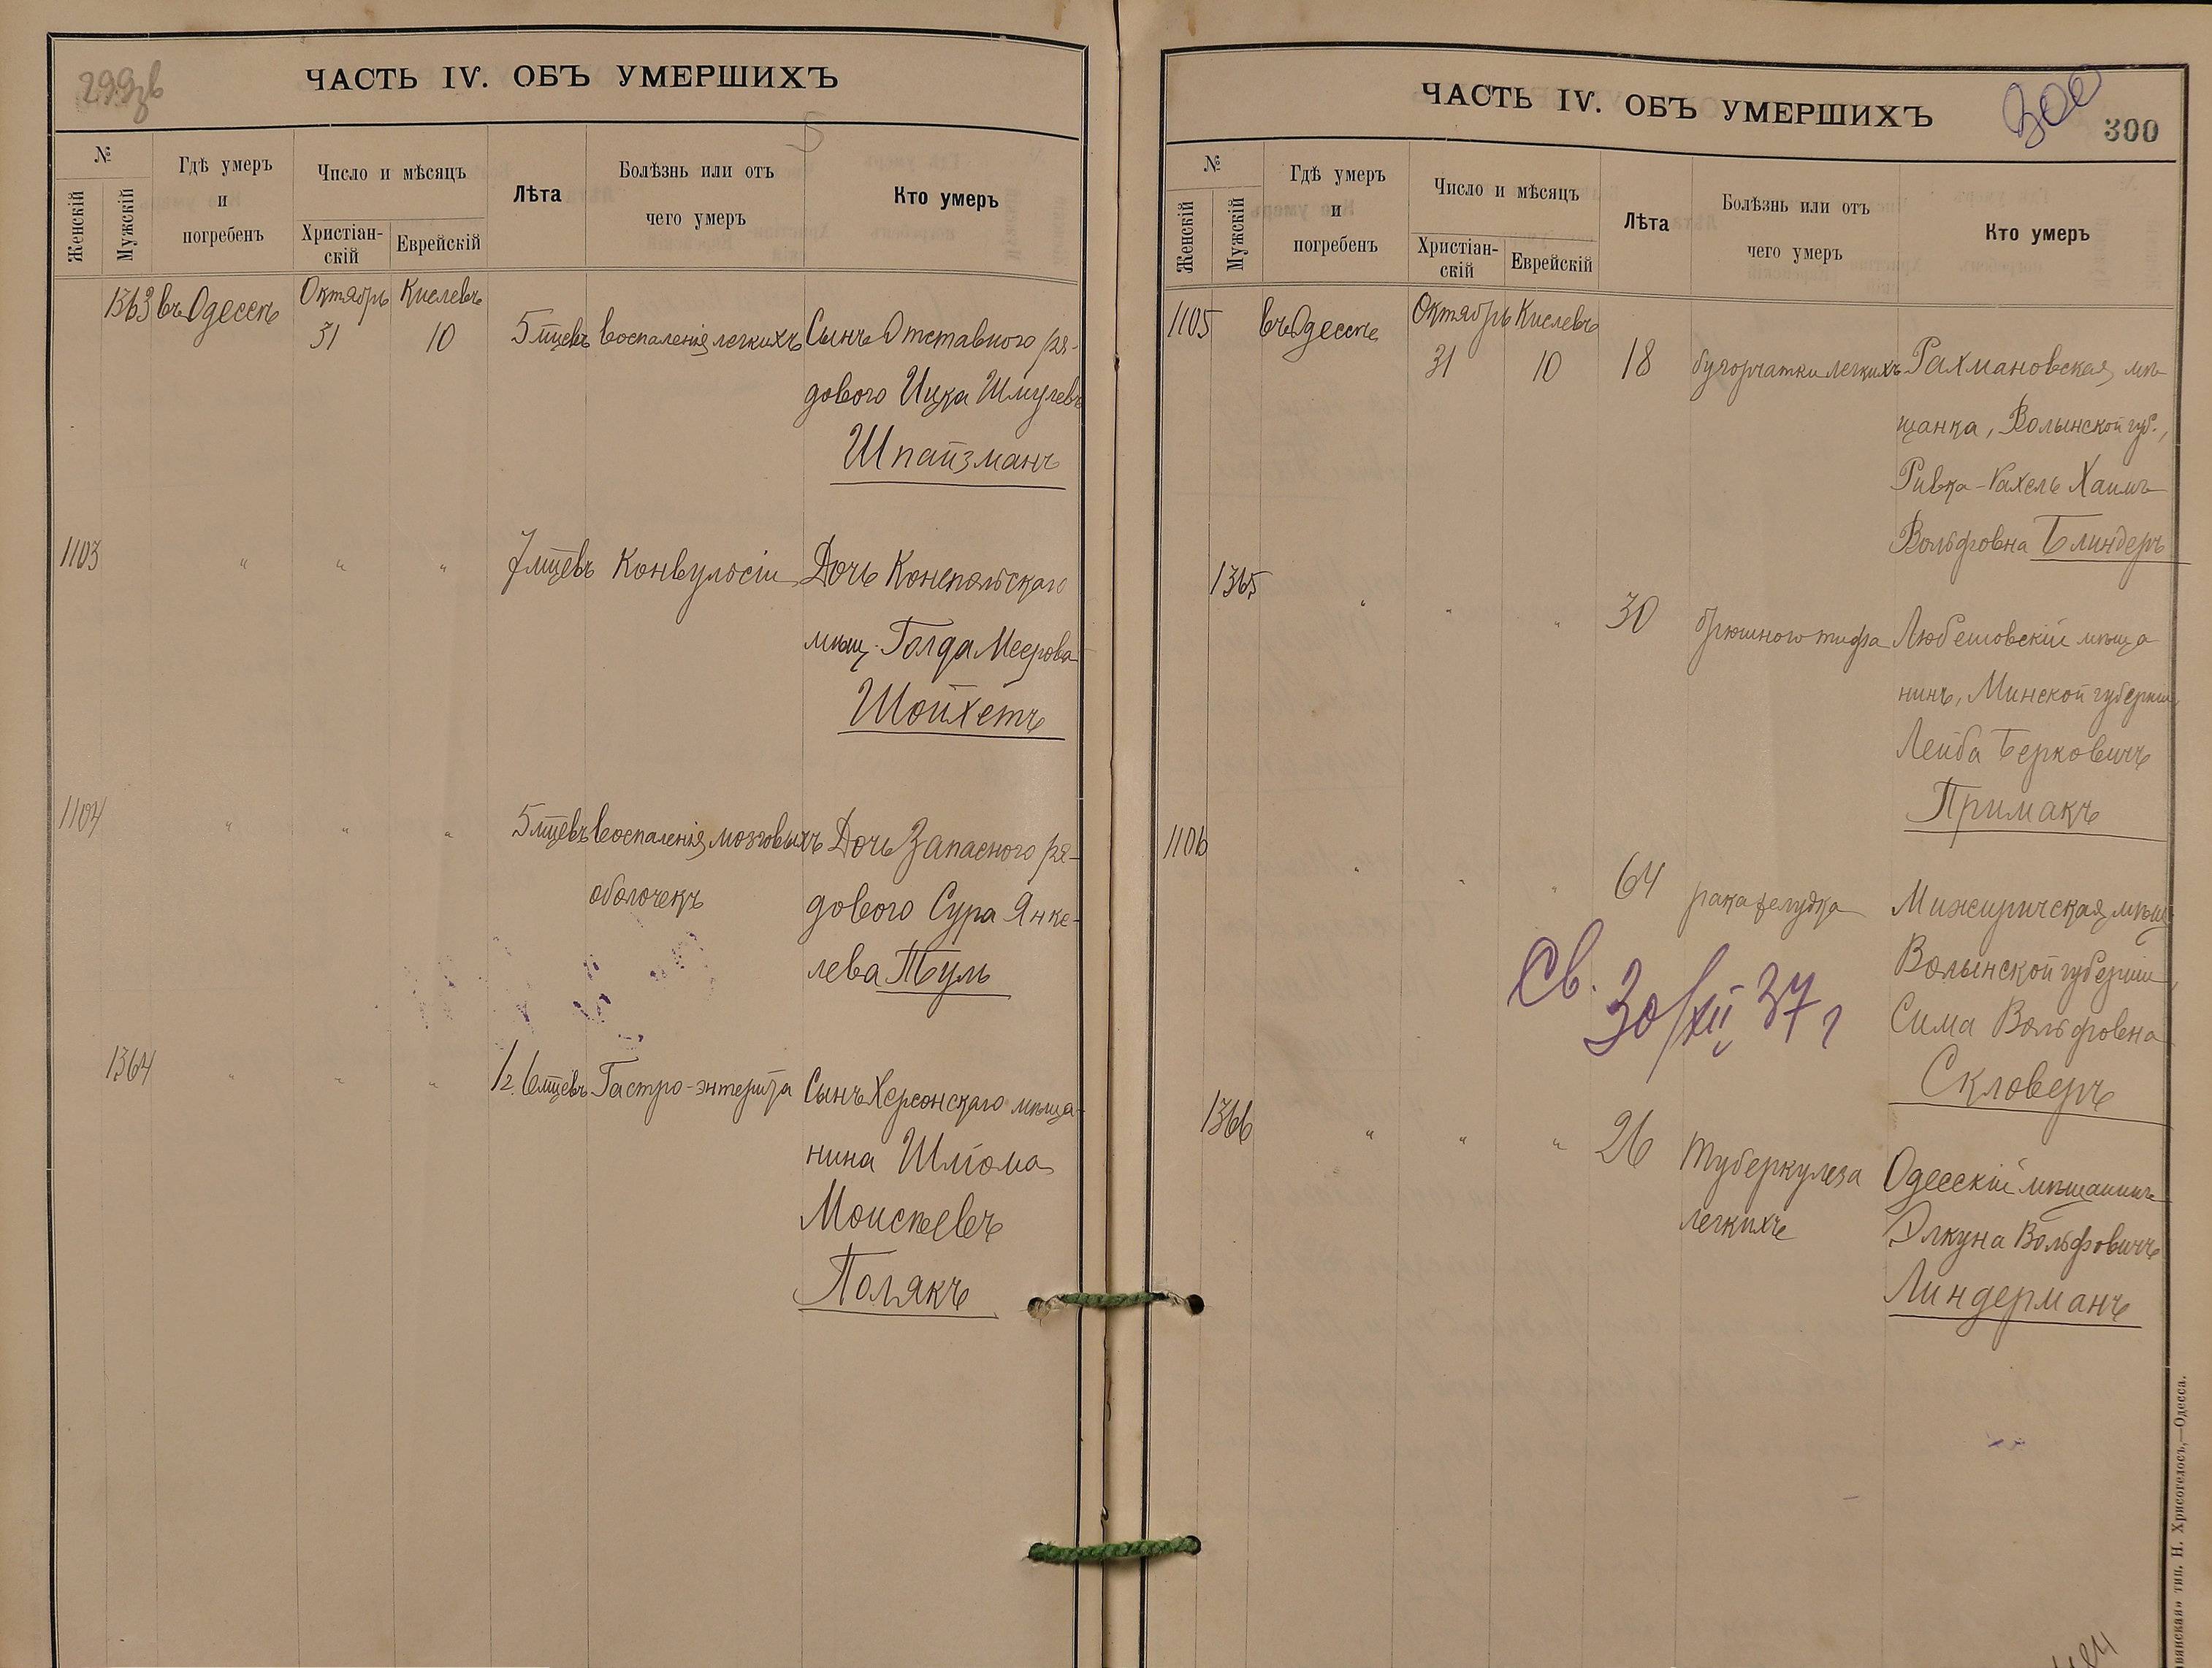 299зв
ЧАСТЬ IV. ОБЪ УМЕРШИХЪ
5
№
Женскій
Мужскій
Гдѣ умеръ
и
погребенъ
Число и мѣсяцъ
Христіан-
скій
Еврейскій
Лѣта
Болѣзнь или отъ
чего умеръ
Кто умеръ
1363 въ Одессѣ Октябрь 31 Кислевъ 10 5 мцевъ воспаленія легкихъ Сынъ Отставного ря-
дового Ицка Шмулевъ
Шпайзманъ
1103 " " " 7 мцевъ Конвульсіи Дочь Конепольскаго
мѣщ. Голда Меерова
Шойхетъ
1104 " " " 5 мцевъ воспаленія мозговыхъ Дочь Запасного ря-
оболочекъ дового Сура Янке-
лева Пуль
1364 " " " 1 г. 6 мцевъ Гастро-энтерита Сынъ Херсонскаго мѣща-
нина Шлiома
Моисѣевъ
Полякъ
ЧАСТЬ IV. ОБЪ УМЕРШИХЪ
300
300
№
Женскій
Мужскій
Гдѣ умеръ
и
погребенъ
Число и мѣсяцъ
Христіан-
скій
Еврейскій
Лѣта
Болѣзнь или отъ
чего умеръ
Кто умеръ
1105 въ Одессѣ Октябрь 31 Кислевъ 10 18 бугорчатки легкихъ Рахмановская мѣ-
щанка, Волынской губ.,
Ривка-Рахель Хаимъ
Вольфовна Блиндеръ
1365 " " " 30 брюшного тифа Любешовскій мѣща
нинъ, Минской губерніи,
Лейба Берковичъ
Примакъ
1106 " " " 64 рака желудка Межиричская мѣщ
Волынской губерніи,
Сима Вольфовна
Скловеръ
Св.
30/XII 37 г
1366 " " " 26 туберкулеза Одесскій мѣщанинъ
легкихъ Элкуна Вольфовичъ
Линдерманъ
тип. Н. Хрисогелосъ,—Одесса.